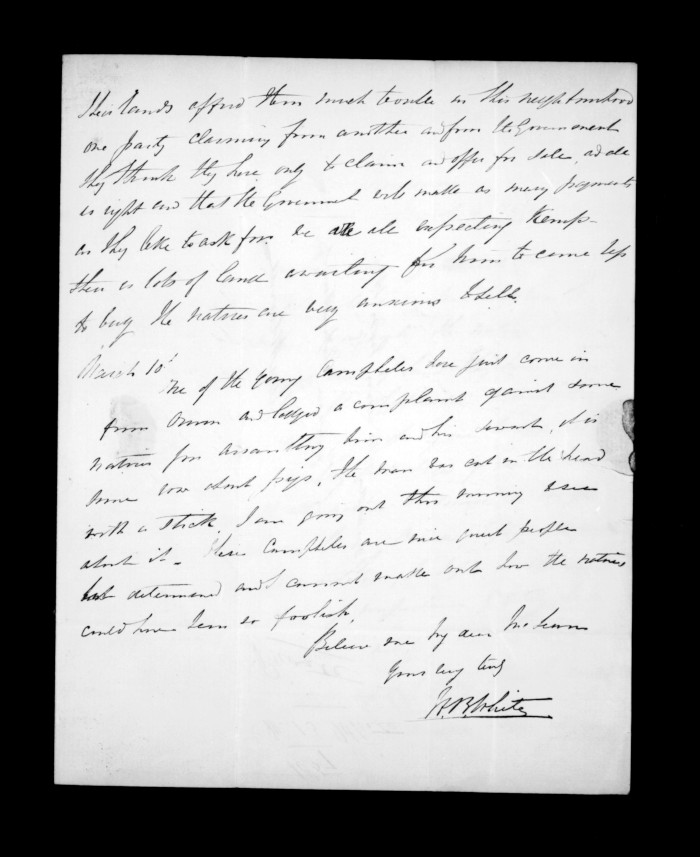 their lands afford them much trouble in this neighbourhood
one party claiming from another and from the Government
they think they have only to claim and offer for sale, and all
is right and that the Government will make as many payments
as they like to ask for. We are all expecting Kemp-
there is lots of land awaiting for him to come up
to buy the natives are very anxious to sell.
March 10th
One of the young Campbells has just come in
from and lodged a complaint against some
natives for assaulting him and his servant, it is
some row about pigs, the man was cut in the head
with a stick. I am going out this morning to see
about it - These Campbells are nice quiet people
but determined and I cannot make out how the natives
could have been so foolish.
Believe me my dear McLean
Yours very truly
W. B. White